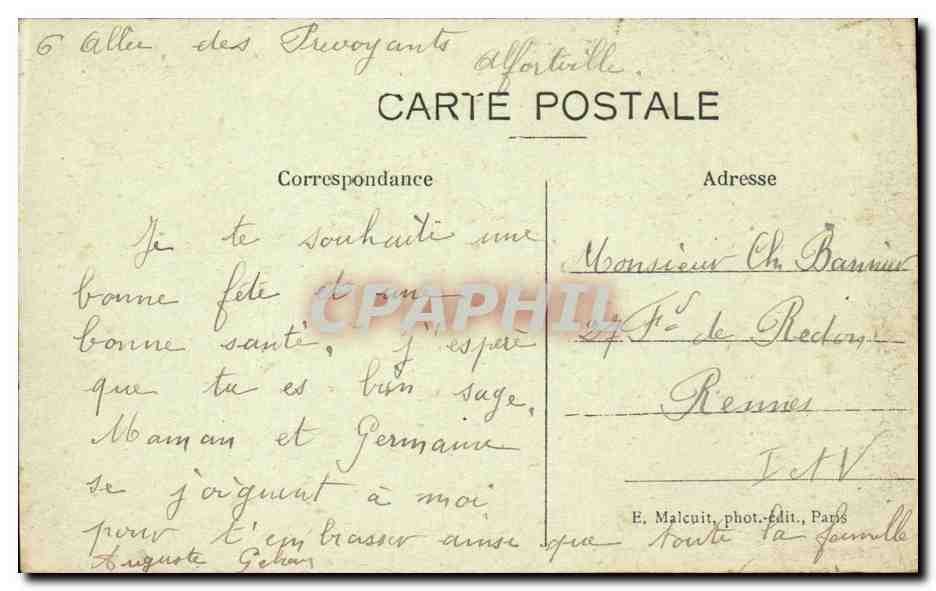 6 Allee des Prevoyants
Alfortville.
CARTE POSTALE
Correspondance
Adresse
Je te souhaite une
bonne fête et une
bonne santé, j'espère
que tu es bien sage,
Maman et Germaine
se joignent à moi
pour t'embrasser ainsi que toute la famille
Auguste
Monsieur Ch Bannier
27 Fg de Redon
Rennes
I et V
E. Malcuit, phot.-édit., Paris
CPAPHIL